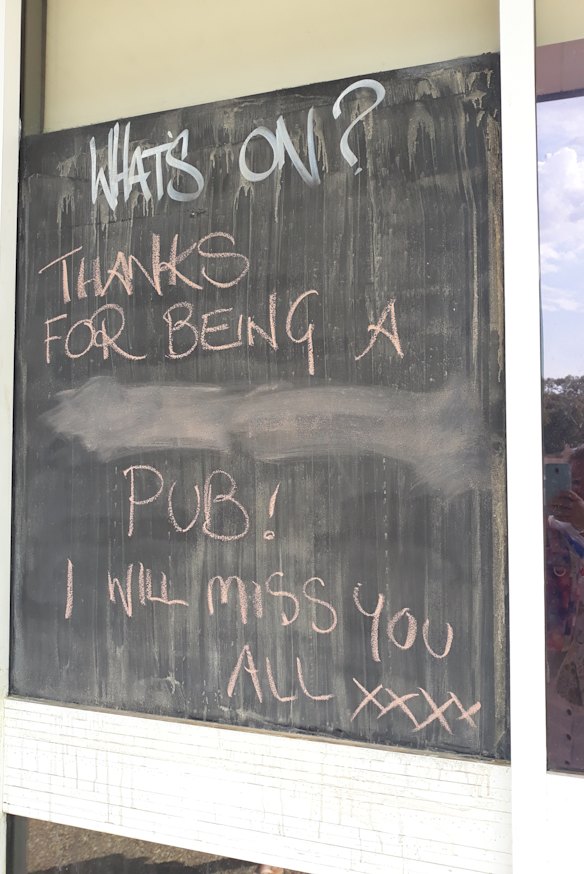 WHAT'S ON?
THANKS
FOR BEING A
PUB!
I WILL MISS YOU
ALL XXXX